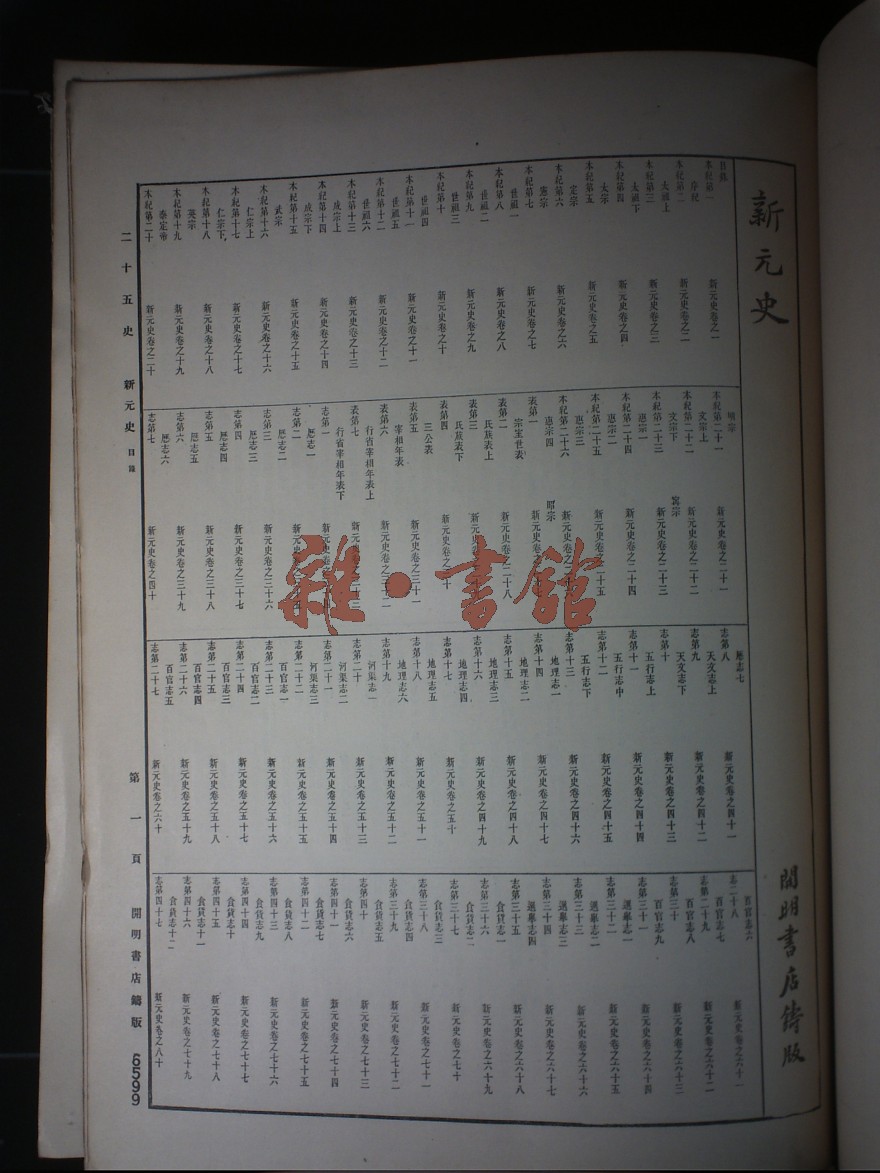 新元史
開明書店鑄版
目錄
本紀第一 新元史卷之一
序紀
本紀第二 新元史卷之二
太祖上
本紀第三 新元史卷之三
太祖下
本紀第四 新元史卷之四
太宗
本紀第五 新元史卷之五
定宗
本紀第六 新元史卷之六
憲宗
本紀第七 新元史卷之七
世祖一
本紀第八 新元史卷之八
世祖二
本紀第九 新元史卷之九
世祖三
本紀第十 新元史卷之十
世祖四
本紀第十一 新元史卷之十一
世祖五
本紀第十二 新元史卷之十二
世祖六
本紀第十三 新元史卷之十三
成宗上
本紀第十四 新元史卷之十四
成宗下
本紀第十五 新元史卷之十五
武宗
本紀第十六 新元史卷之十六
仁宗上
本紀第十七 新元史卷之十七
仁宗下
本紀第十八 新元史卷之十八
英宗
本紀第十九 新元史卷之十九
泰定帝
本紀第二十 新元史卷之二十
明宗
本紀第二十一 新元史卷之二十一
文宗上
本紀第二十二 新元史卷之二十二
文宗下 寧宗
本紀第二十三 新元史卷之二十三
惠宗一
本紀第二十四 新元史卷之二十四
惠宗二
本紀第二十五 新元史卷之二十五
惠宗三
本紀第二十六 新元史卷之二十六
惠宗四 昭宗
表第一 新元史卷之二十七
宗室世表
表第二 新元史卷之二十八
氏族表上
表第三 新元史卷之二十九
氏族表下
表第四 新元史卷之三十
三公表
表第五 新元史卷之三十一
宰相年表
表第六 新元史卷之三十二
行省宰相年表上
表第七 新元史卷之三十三
行省宰相年表下
志第一 新元史卷之三十四
曆志一
志第二 新元史卷之三十五
曆志二
志第三 新元史卷之三十六
曆志三
志第四 新元史卷之三十七
曆志四
志第五 新元史卷之三十八
曆志五
志第六 新元史卷之三十九
曆志六
志第七 新元史卷之四十
曆志七
志第八 新元史卷之四十一
天文志上
志第九 新元史卷之四十二
天文志下
志第十 新元史卷之四十三
五行志上
志第十一 新元史卷之四十四
五行志中
志第十二 新元史卷之四十五
五行志下
志第十三 新元史卷之四十六
地理志一
志第十四 新元史卷之四十七
地理志二
志第十五 新元史卷之四十八
地理志三
志第十六 新元史卷之四十九
地理志四
志第十七 新元史卷之五十
地理志五
志第十八 新元史卷之五十一
地理志六
志第十九 新元史卷之五十二
河渠志一
志第二十 新元史卷之五十三
河渠志二
志第二十一 新元史卷之五十四
河渠志三
志第二十二 新元史卷之五十五
百官志一
志第二十三 新元史卷之五十六
百官志二
志第二十四 新元史卷之五十七
百官志三
志第二十五 新元史卷之五十八
百官志四
志第二十六 新元史卷之五十九
百官志五
志第二十七 新元史卷之六十
百官志六
志二十八 新元史卷之六十一
百官志七
志第二十九 新元史卷之六十二
百官志八
志第三十 新元史卷之六十三
百官志九
志第三十一 新元史卷之六十四
選舉志一
志第三十二 新元史卷之六十五
選舉志二
志第三十三 新元史卷之六十六
選舉志三
志第三十四 新元史卷之六十七
選舉志四
志第三十五 新元史卷之六十八
食貨志一
志第三十六 新元史卷之六十九
食貨志二
志第三十七 新元史卷之七十
食貨志三
志第三十八 新元史卷之七十一
食貨志四
志第三十九 新元史卷之七十二
食貨志五
志第四十 新元史卷之七十三
食貨志六
志第四十一 新元史卷之七十四
食貨志七
志第四十二 新元史卷之七十五
食貨志八
志第四十三 新元史卷之七十六
食貨志九
志第四十四 新元史卷之七十七
食貨志十
志第四十五 新元史卷之七十八
食貨志十一
志第四十六 新元史卷之七十九
食貨志十二
志第四十七 新元史卷之八十
二十五史 新元史 目錄 第一頁 開明書店鑄版 6599
雜·書館